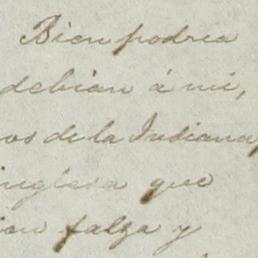 Bien podrea
debian á mi,
os de la Indiana,
inglesa que
ion falza y